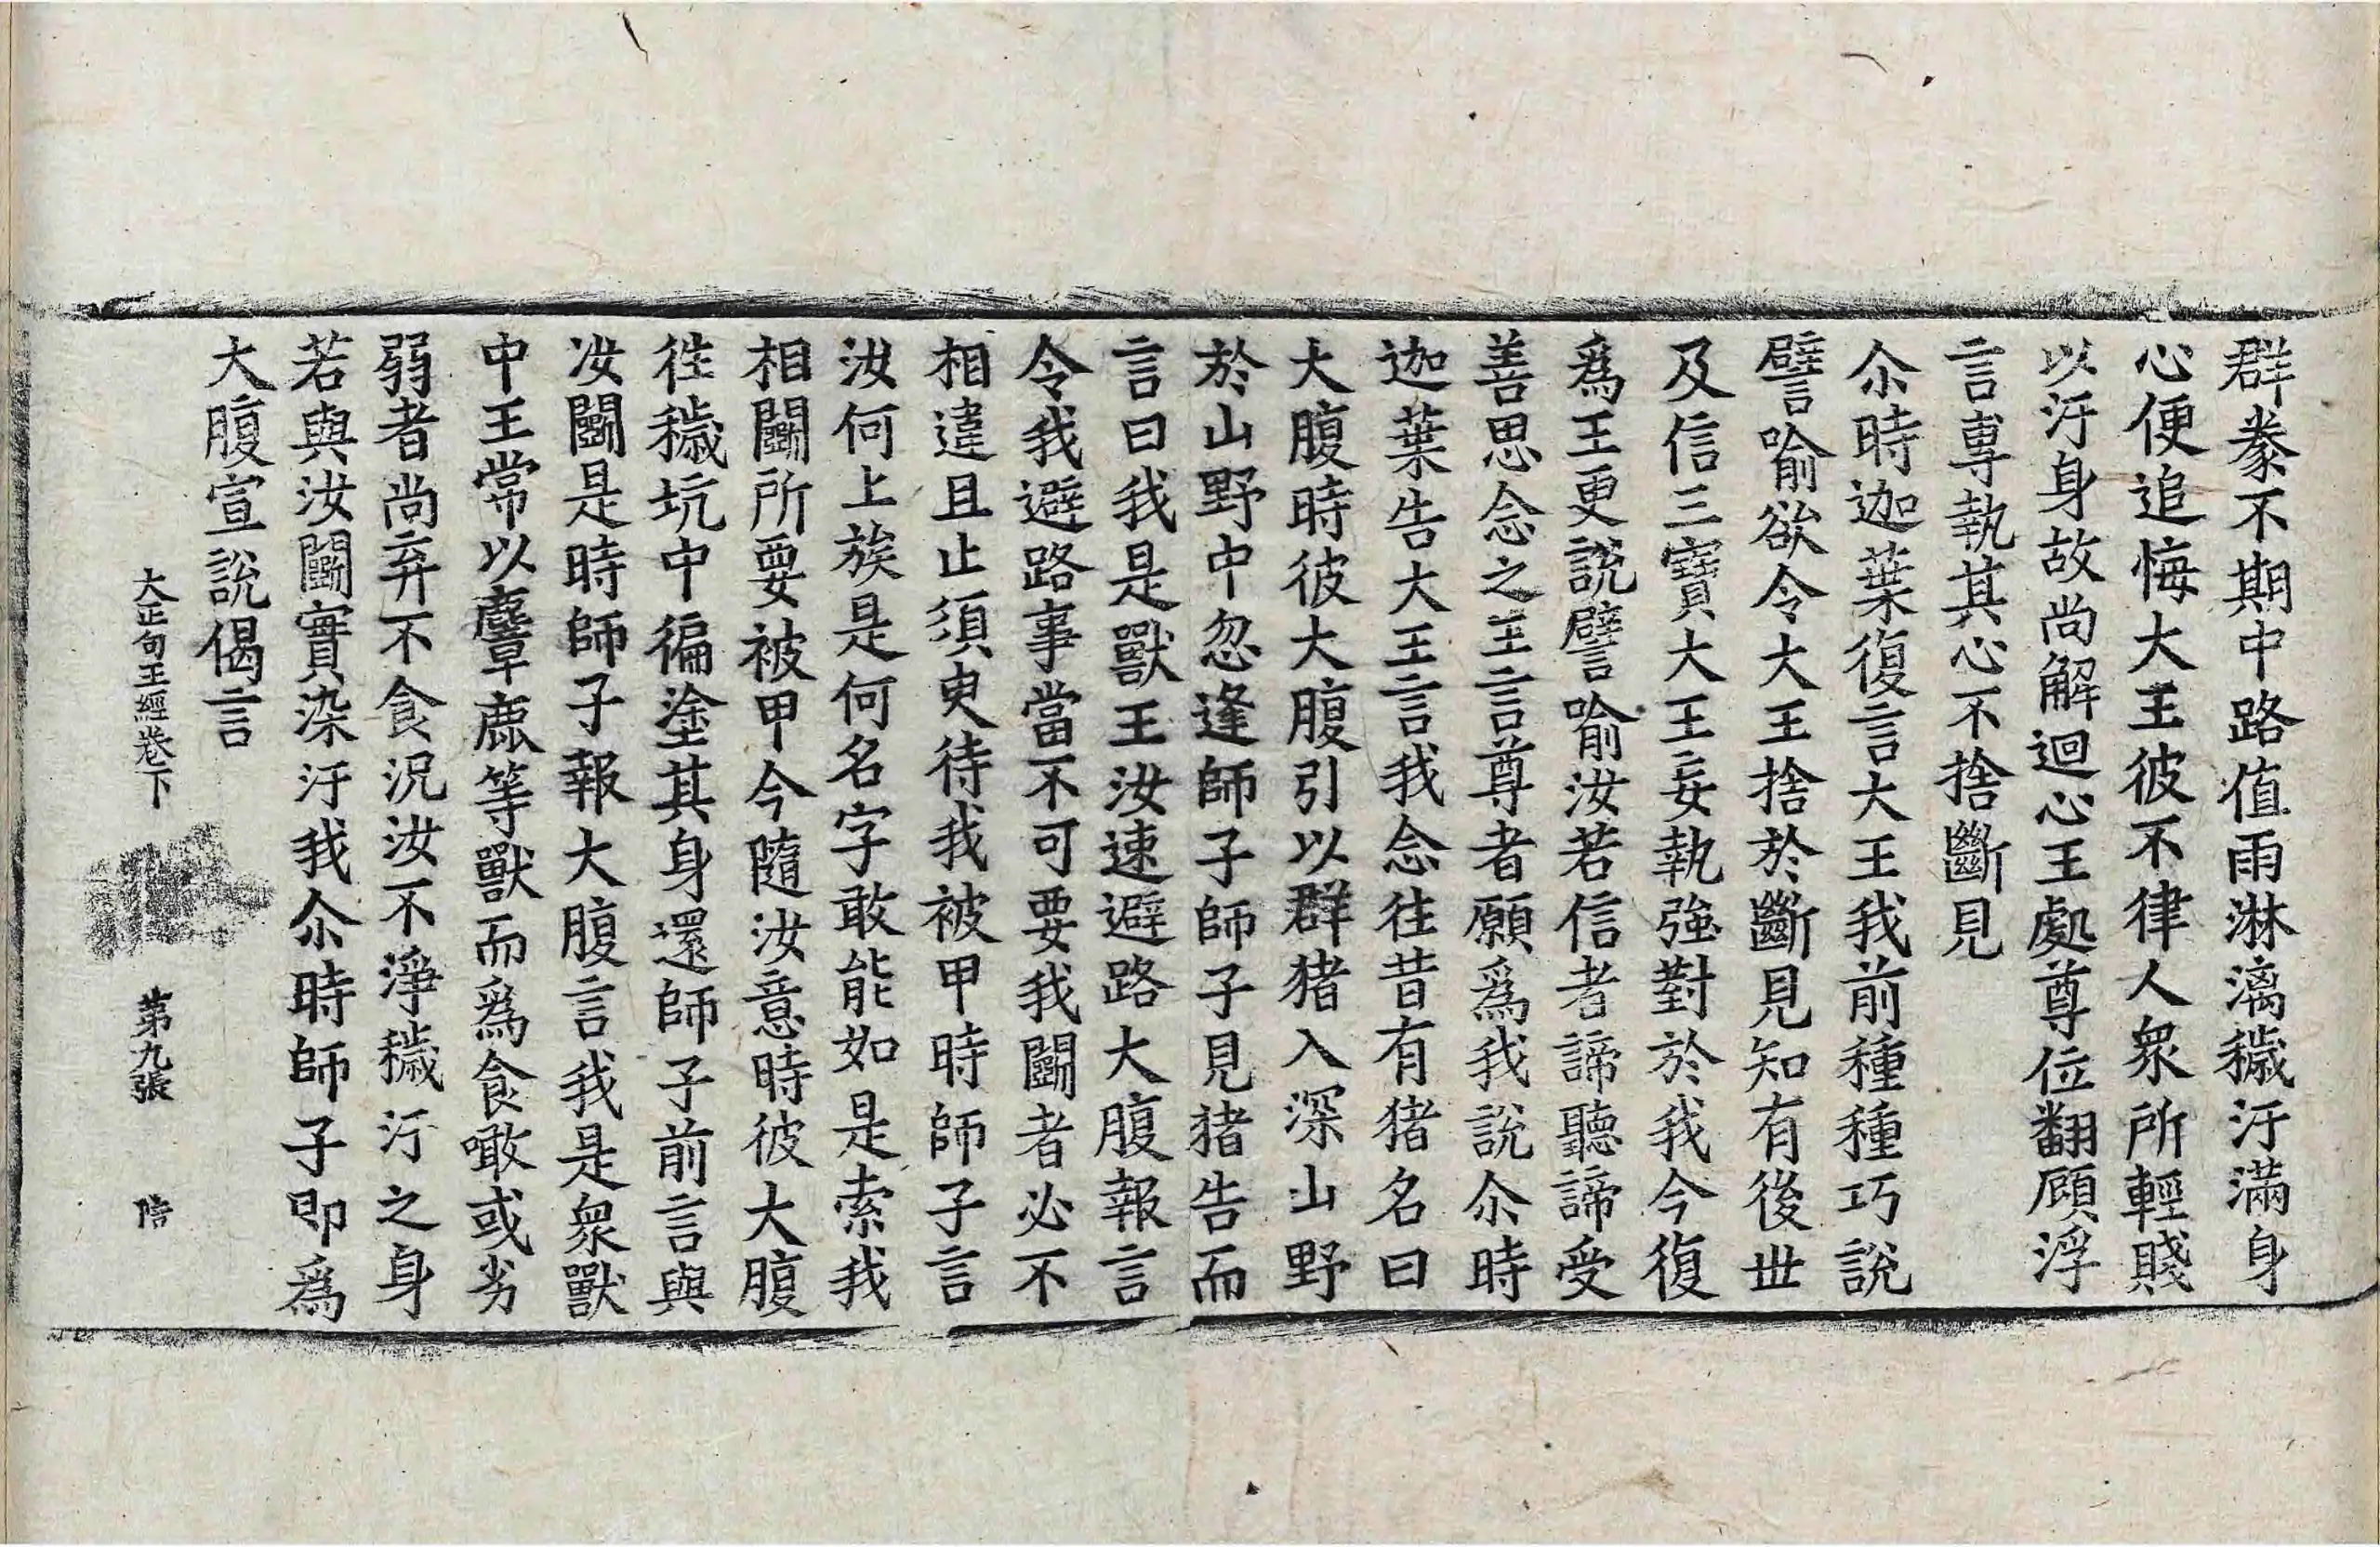 群豢不期中路值雨淋漓穢汙滿身
心便追悔大王彼不律人衆所輕賤
以汙身故尚解迴心王處尊位翻顧浮
言專執其心不捨斷見
尒時迦葉復言大王我前種種巧說
譬喻欲令大王捨於斷見知有後世
及信三寶大王妄執強對於我今復
爲王更說譬喻汝若信者諦聽諦受
善思念之王言尊者願爲我說尒時
迦葉告大王言我念往昔有猪名曰
大腹時彼大腹引以群猪入深山野
於山野中忽逢師子師子見猪告而
言曰我是獸王汝速避路大腹報言
令我避路事當不可要我鬭者必不
相違且止須臾待我被甲時師子言
汝何上族是何名字敢能如是索我
相鬭所要被甲今隨汝意時彼大腹
徃穢坑中徧塗其身還師子前言與
汝鬭是時師子報大腹言我是衆獸
中王常以麞鹿等獸而爲食噉或劣
弱者尚弃不食況汝不淨穢汙之身
若與汝鬭實染汙我尒時師子即爲
大腹宣說偈言
大正句王經卷下 第九張 陪